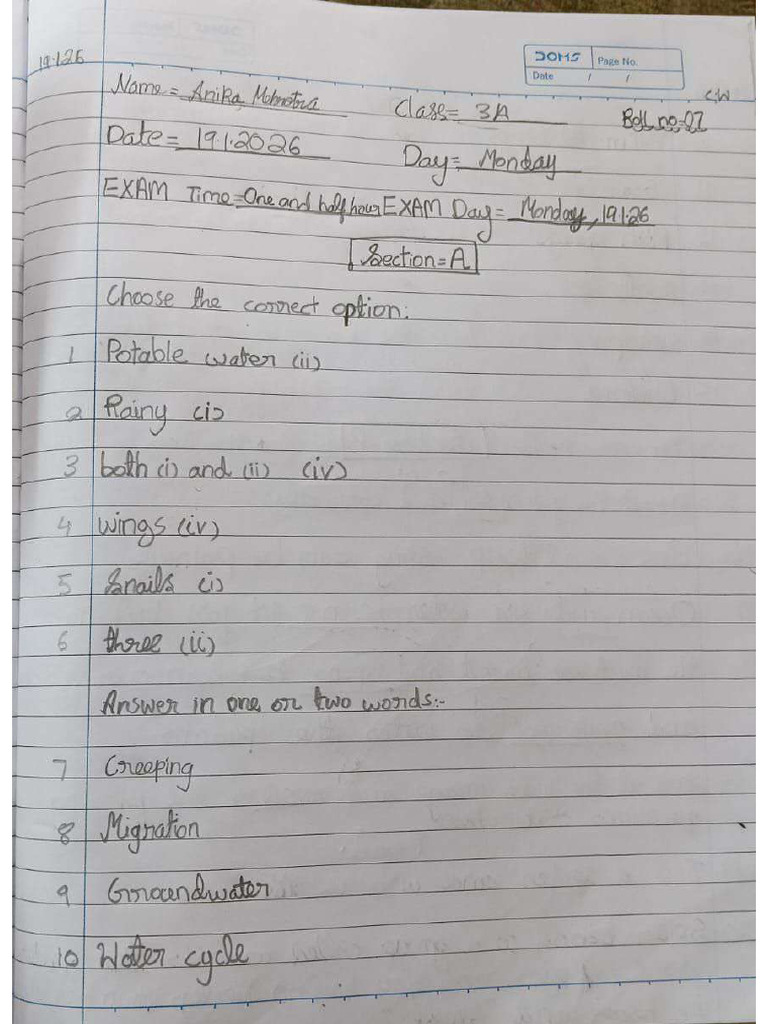 19.1.26
DOMS Page No.
Date / /
C.W
Name = Anika Class = 3A Roll no-07
Date = 19.1.2026 Day = Monday
EXAM Time = One and half hour EXAM Day = Monday, 19.1.26
Section = A
Choose the correct option:
1 Potable water (ii)
2 Rainy (i)
3 both (i) and (ii) (iv)
4 wings (iv)
5 Snails (i)
6 three (ii)
Answer in one or two words:-
7 Creeping
8 Migration
9 Groundwater
10 Water cycle